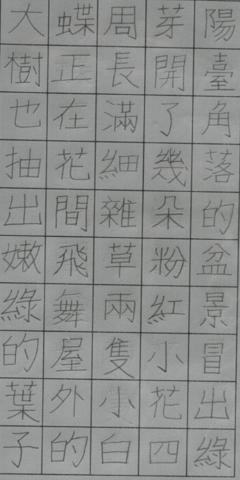 陽臺角落的盆景冒出綠
芽開了幾朵粉紅小花四
周長滿細雜草兩隻小白
蝶正在花間飛舞屋外的
大樹也抽出嫩綠的葉子